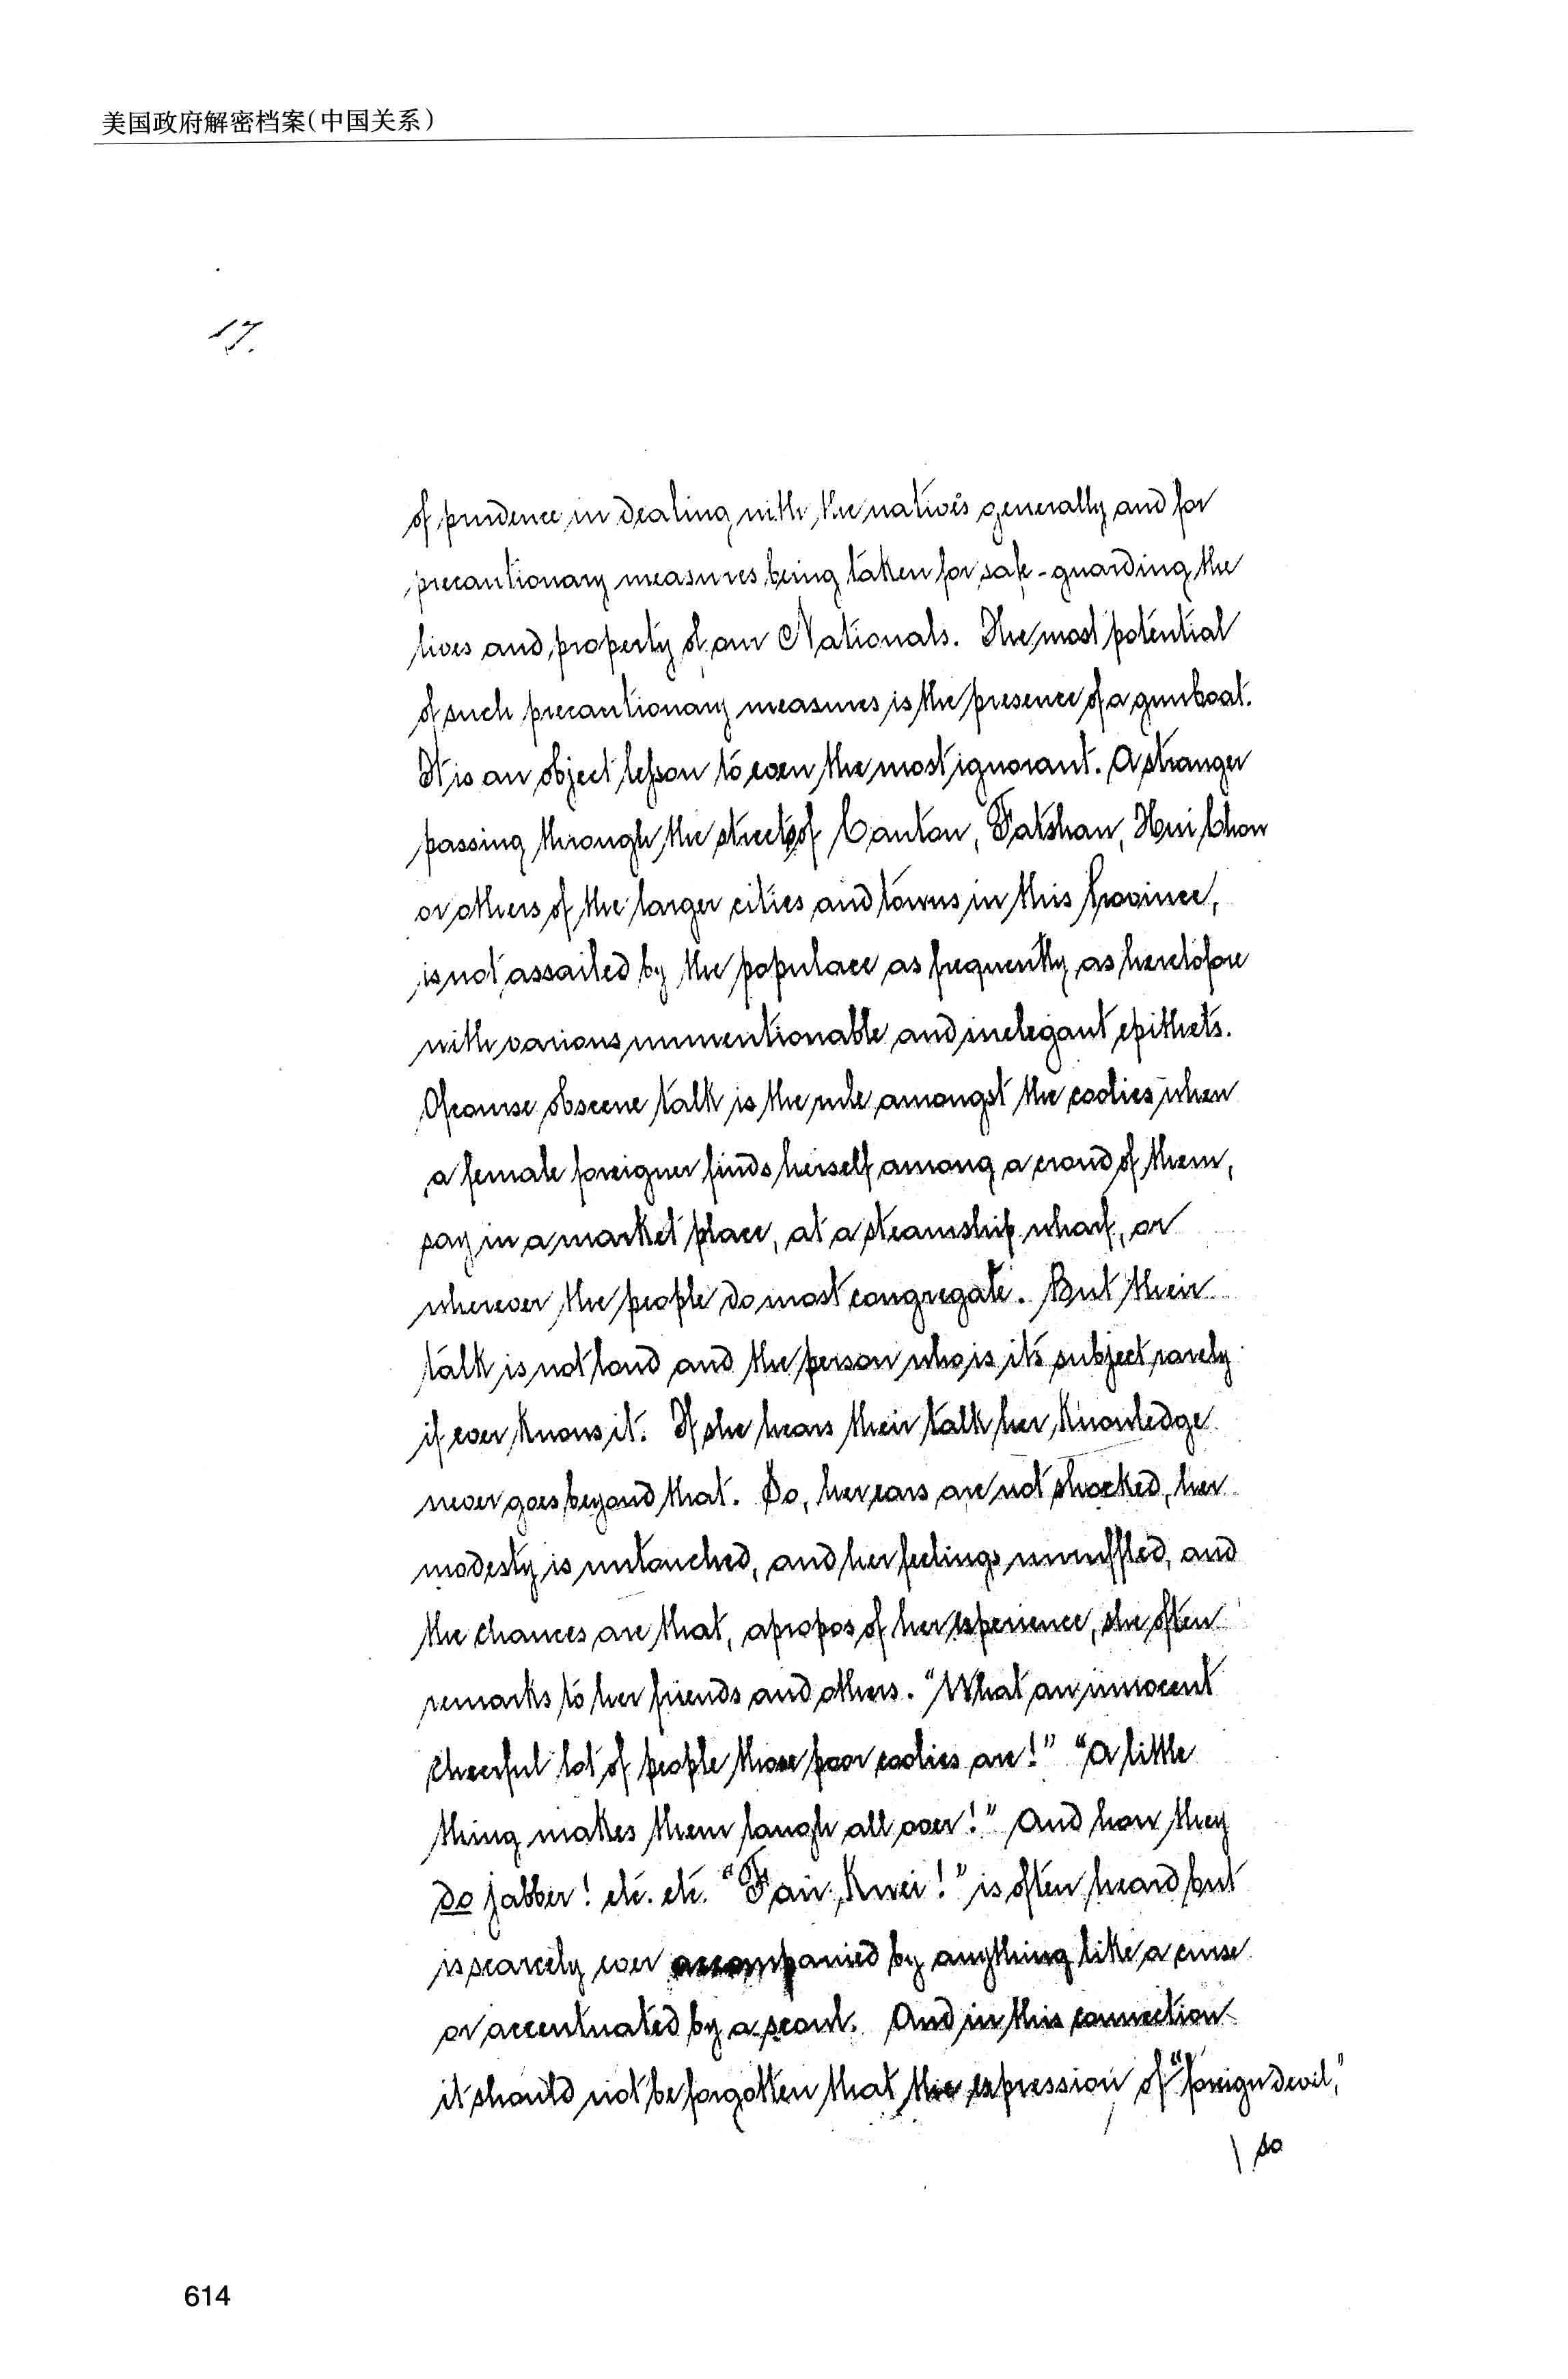 美国政府解密档案(中国关系)
17.
of prudence in dealing with the natives generally and for
precautionary measures being taken for safe-guarding the
lives and property of our Nationals. The most potential
of such precautionary measures is the presence of a gunboat.
It is an object lesson to even the most ignorant. A stranger
passing through the streets of Canton, Fatshan, Hui Chow
or others of the larger cities and towns in this Province,
is not assailed by the populace as frequently as heretofore
with various unmentionable and inelegant epithets.
Of course obscene talk is the rule amongst the coolies when
a female foreigner finds herself among a crowd of them,
say in a market place, at a steamship wharf, or
wherever the people do most congregate. But their
talk is not loud and the person who is its subject rarely
if ever knows it. If she hears their talk her knowledge
never goes beyond that. So, her ears are not shocked, her
modesty is untouched, and her feelings unruffled, and
the chances are that, apropos of her experience, she often
remarks to her friends and others. "What an innocent
cheerful lot of people those poor coolies are!" "A little
thing makes them laugh all over!" And how they
do jabber! etc. etc. "Fan Kwei!" is often heard but
is scarcely ever accompanied by anything like a curse
or accentuated by a scowl. And in this connection
it should not be forgotten that the expression of "foreign devil,"
so
614